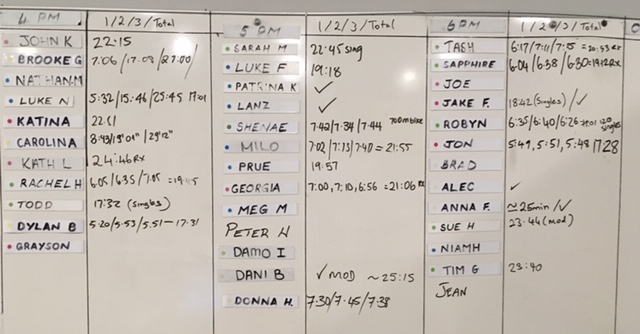 4 PM 1/2/3/Total
JOHN K 22:15
BROOKE G 7:06 /17:08/27:00/
NATHAN M
LUKE N 5:32/15:46/25:45 17:01
KATINA 22:51
CAROLINA 8:43/19'01"/29'12"
KATH L 24:46 RX
RACHEL H 6:05/6:35/7:05 = 19:45
TODD 17:32 (singles)
DYLAN B 5:20/5:53/5:51 — 17:31
GRAYSON
5 PM 1/2/3/Total
SARAH M 22:45 sing
LUKE F 19:18
PATRINA K ✓
LANZ ✓
SHENAE 7:42/7:34/7:44 700m bike
MILO 7:02/7:13/7:40 = 21:55
PRUE 19:57
GEORGIA 7:00, 7:10, 6:56 = 21:06 RX
MEG M
PETER H
DAMO I
DANI B ✓ MOD ~25:15
DONNA H. 7:30/7:45/7:38
6PM 1/2/3/Total
TASH 6:17/7:11/7:15 = 20:53 RX
SAPPHIRE 6:04/6:38/6:30 = 19:12 RX
JOE
JAKE F. 18:42 (Singles) /✓
ROBYN 6:35/6:40/6:26 120 singles
JON 5:49, 5:51, 5:48 17:28
BRAD
ALEC ✓
ANNA F. ~25min /✓
SUE H 23:44 (mod)
NIAMH
TIM G 23:40
JEAN